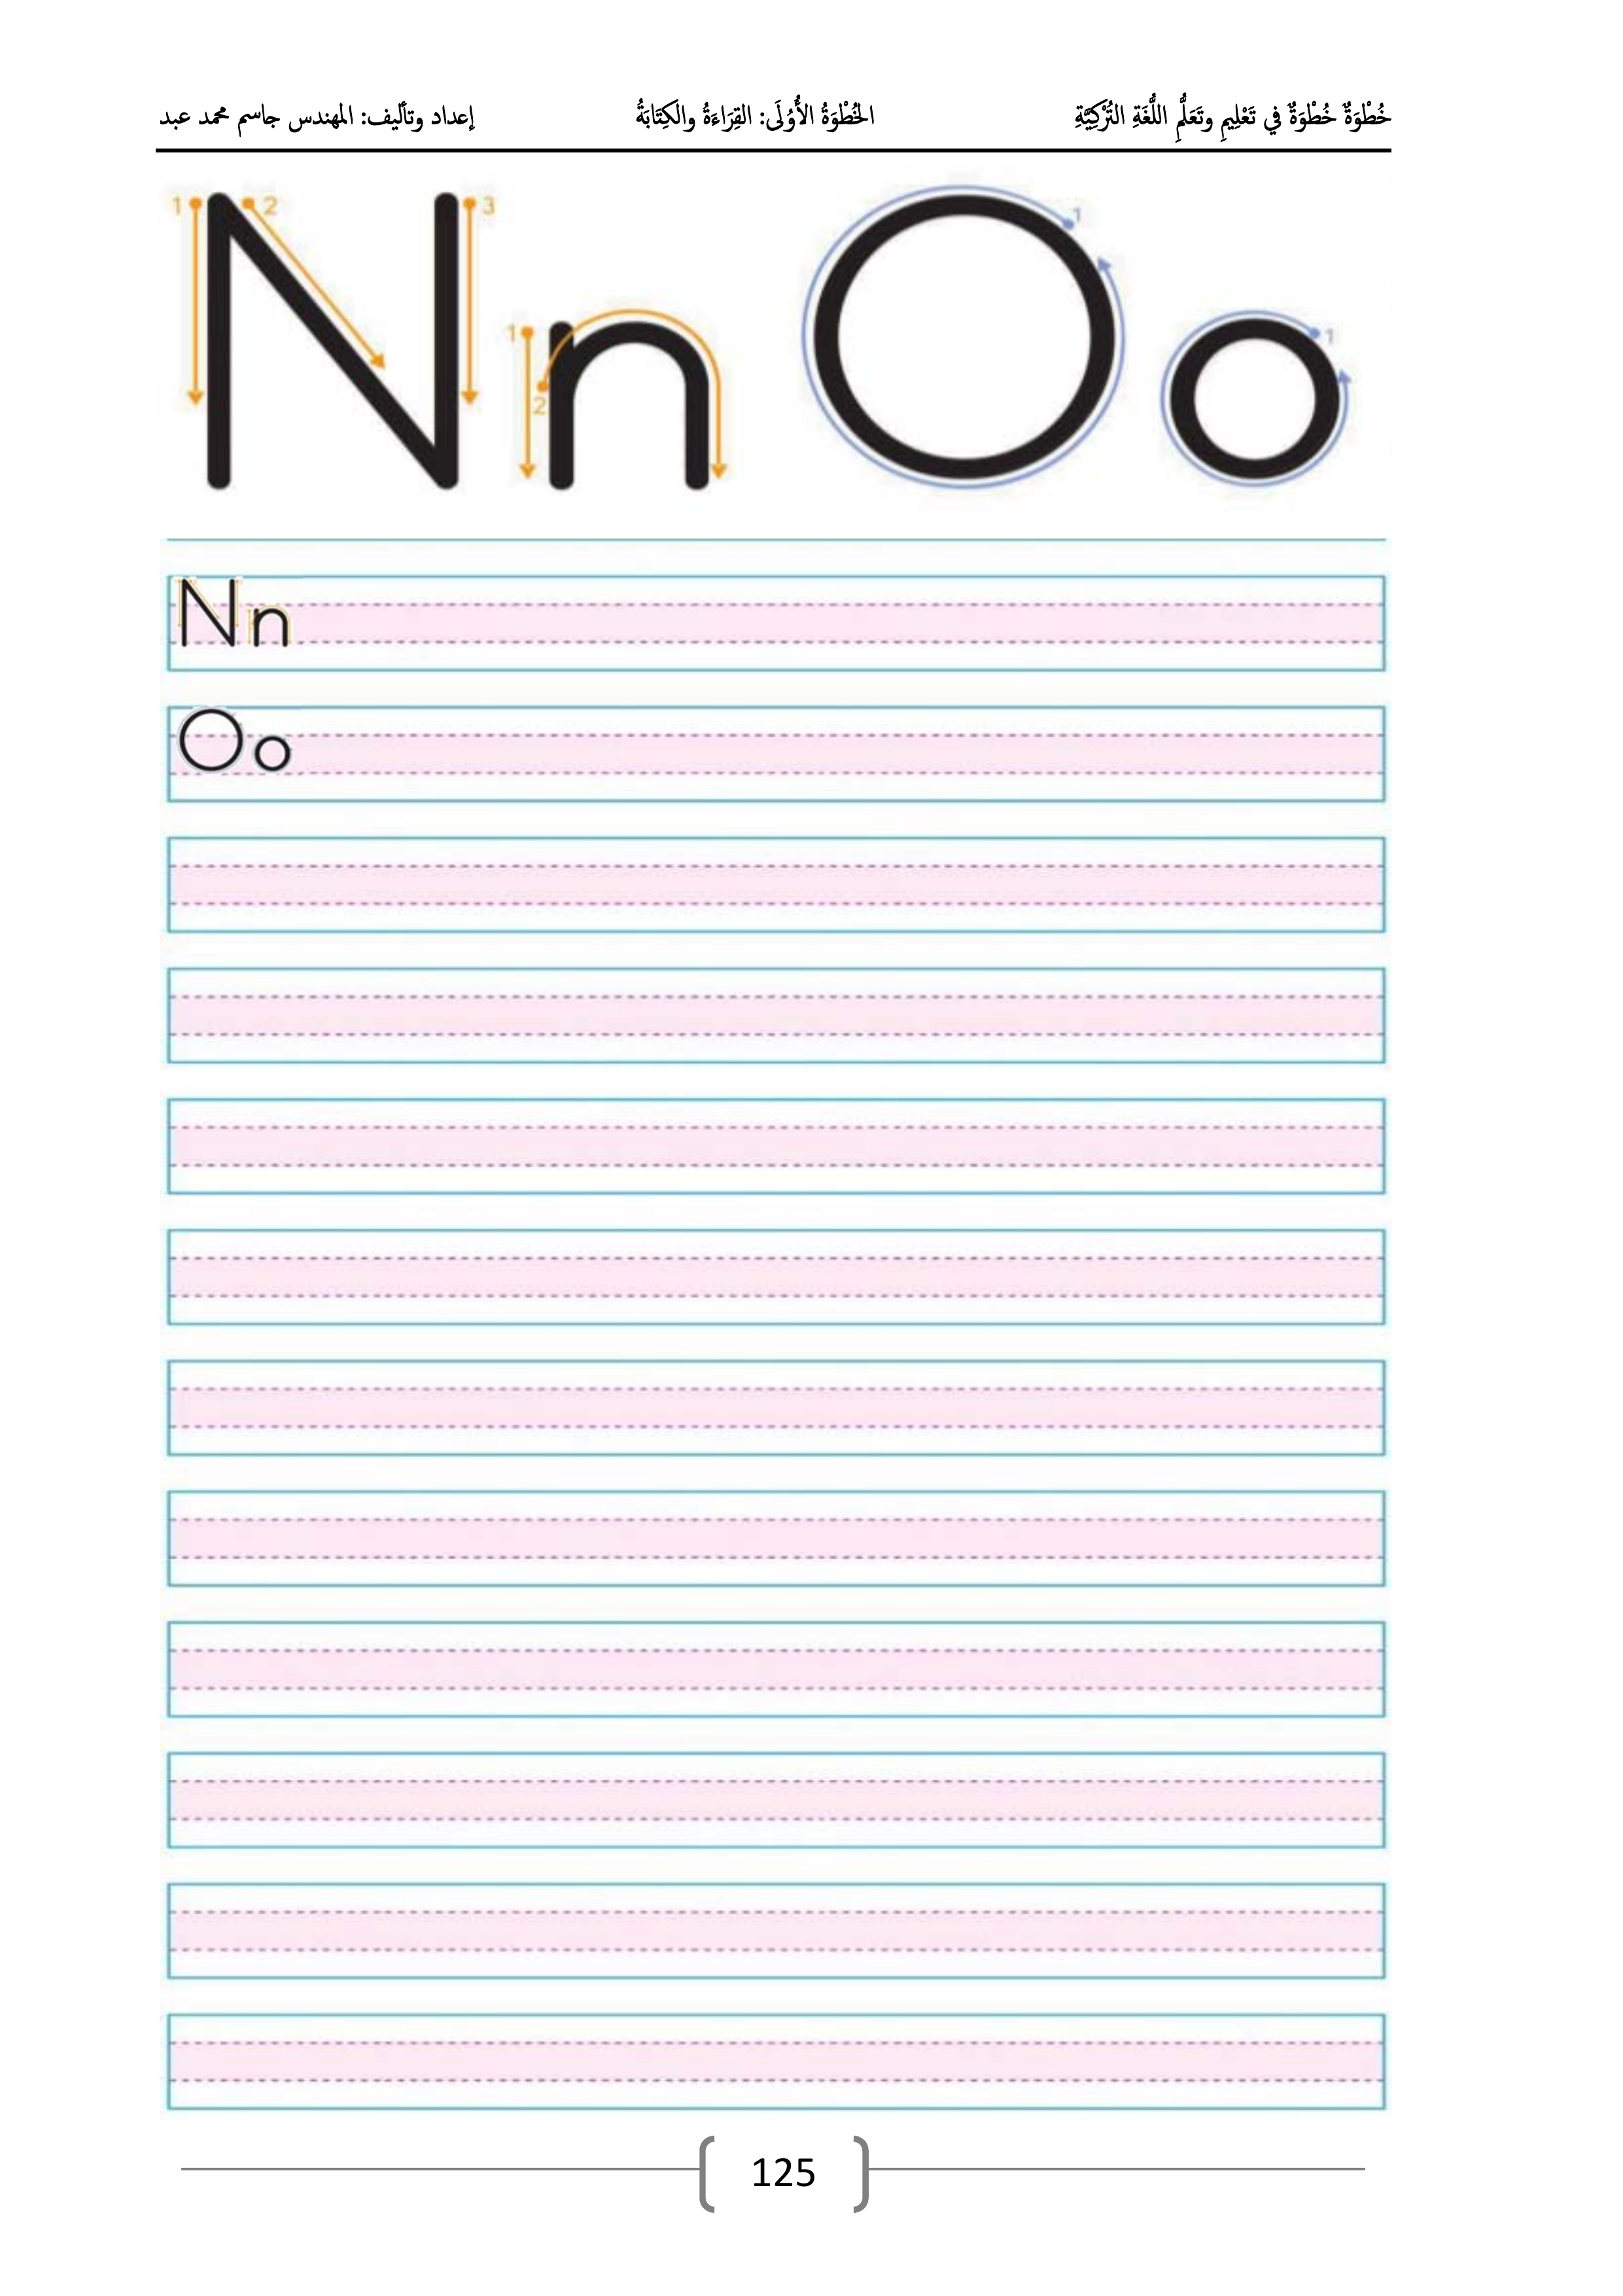 خُطْوَةٌ خُطْوَةٌ في تَعْلِيمِ وتَعَلُّمِ اللُّغَةِ التُّرْكِيَّةِ الخُطْوَةُ الأُوْلَى: القِرَاءَةُ والكِتَابَةُ إعداد وتأليف: المهندس جاسم محمد عبد
1 2 3 1 1
Nn Oo
1 2
Nn
Oo
125